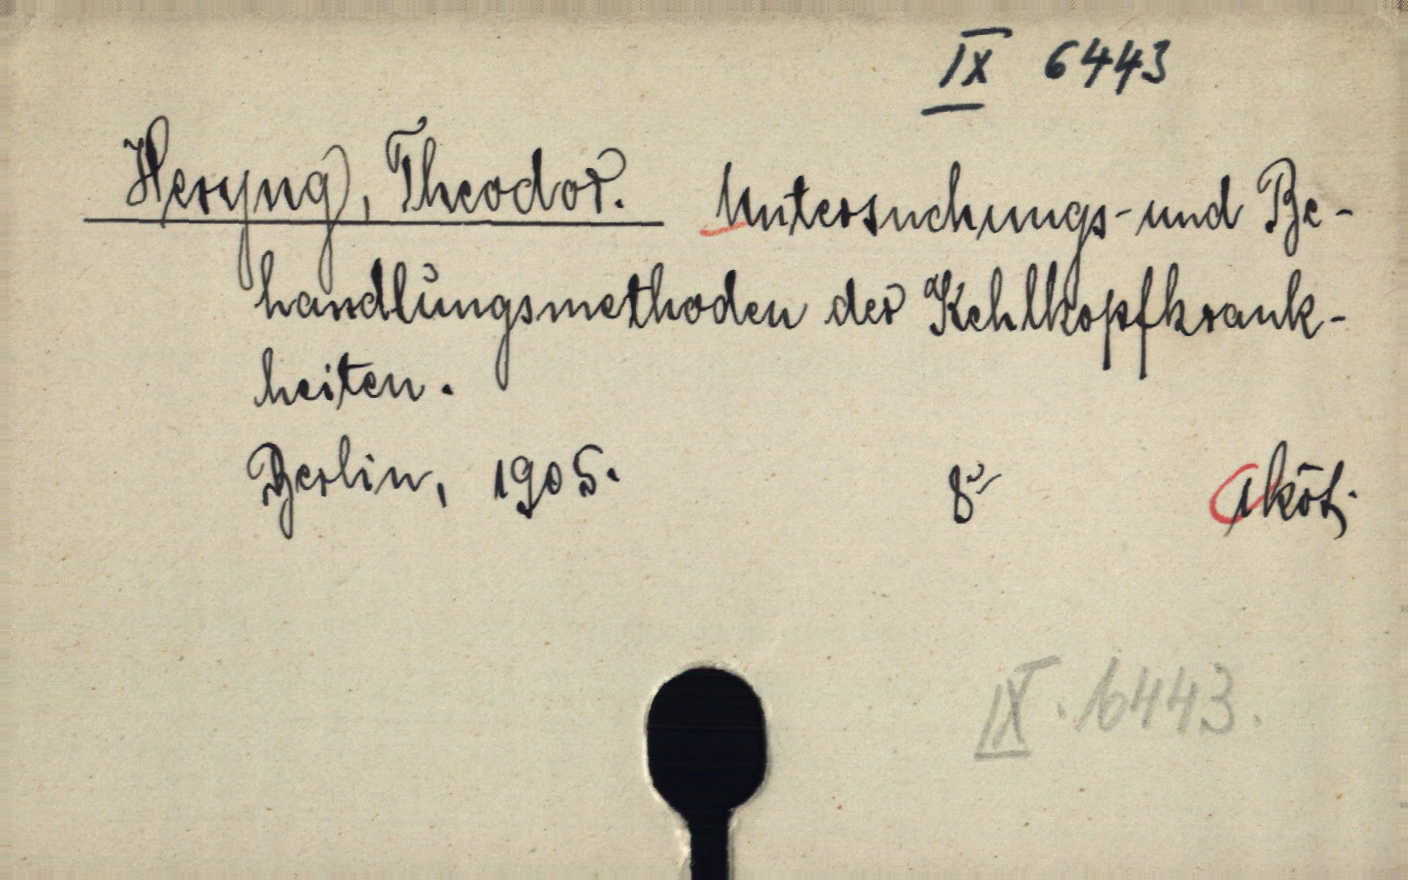 IX 6443
Heryng, Theodor. Untersuchungs- und Be-
handlungsmethoden der Kehlkopfkrank-
heiten.
Berlin, 1905. 8º 1 köt.
IX. 6443.